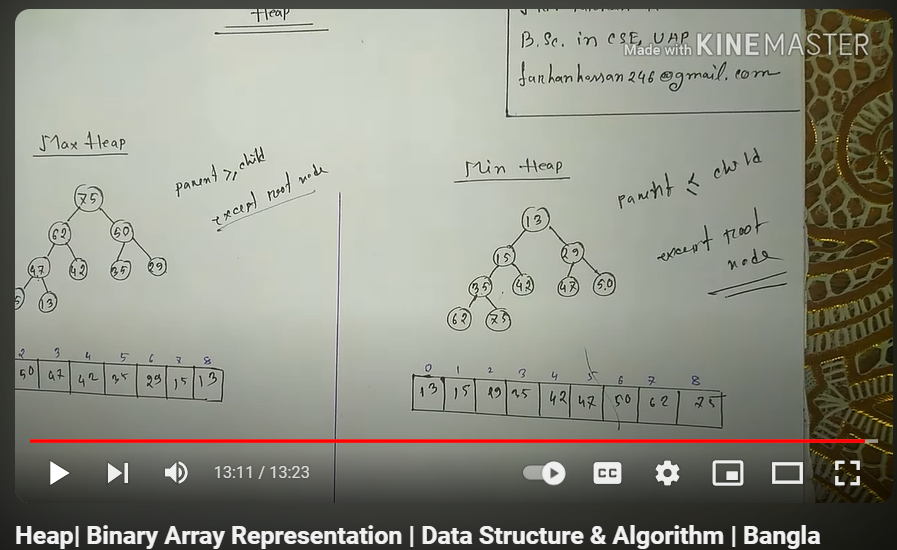 Heap
B.Sc. in CSE, UAP
Made with KINEMASTER
farhanhassan246@gmail.com
Max Heap
parent ≥ child
except root node
75
62 50
47 42 35 29
13
2 3 4 5 6 7 8
50 47 42 35 29 15 13
Min Heap
parent ≤ child
except root
node
13
15 29
35 42 47 50
62 75
0 1 2 3 4 5 6 7 8
13 15 29 35 42 47 50 62 75
13:11 / 13:23
CC
Heap| Binary Array Representation | Data Structure & Algorithm | Bangla